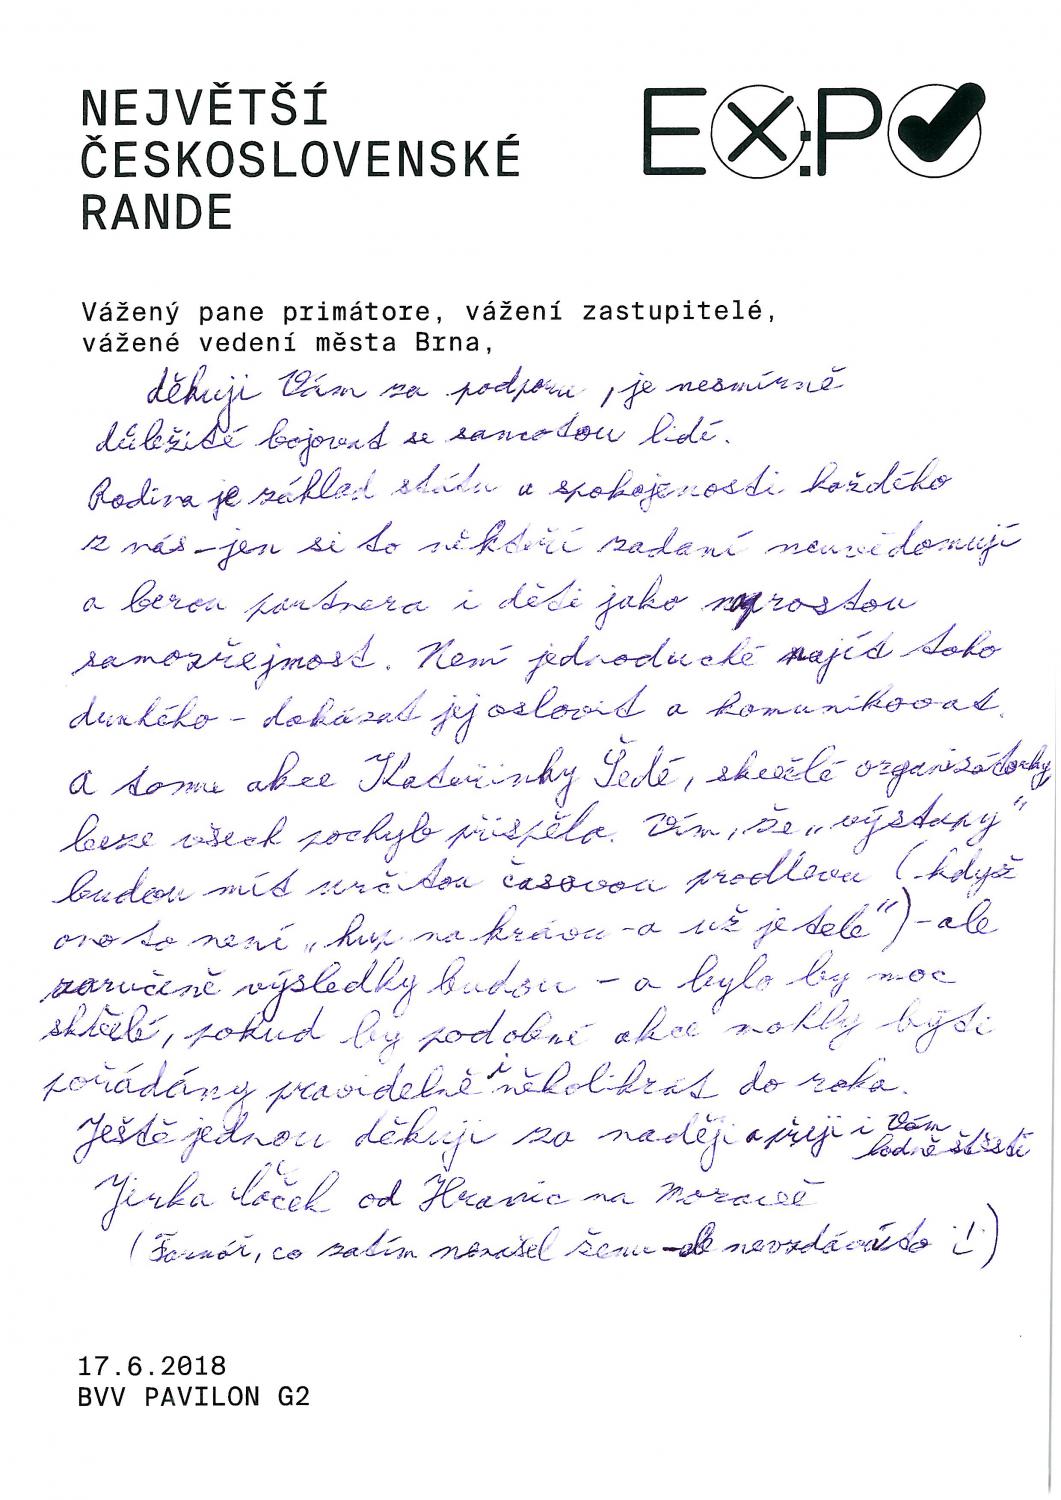 NEJVĚTŠÍ
ČESKOSLOVENSKÉ
RANDE
EX:P✓
Vážený pane primátore, vážení zastupitelé,
vážené vedení města Brna,
děkuji Vám za podporu, je nesmírně
důležité bojovat se samotou lidí.
Rodina je základ státu a spokojenosti každého
z nás - jen si to někteří zadaní neuvědomují
a berou partnera i děti jako prostou
samozřejmost. Není jednoduché najít toho
druhého - dokázat jej oslovit a komunikovat.
A tomu akce Kateřinky Šedé, skvělé organizátorky
beze všech pochyb přispěla. Vím, že „výstupy"
budou mít určitou časovou prodlevu (když
ono to není „hup na krávu - a už je tele") - ale
zaručeně výsledky budou - a bylo by moc
skvělé, pokud by podobné akce mohly býti
pořádány pravidelně i několikrát do roka.
Ještě jednou děkuji za naději a přeji i Vám
hodně štěstí
Jirka od Hranic na Moravě
(Farmář, co zatím nenašel ženu - ale nevzdává to !)
17.6.2018
BVV PAVILON G2